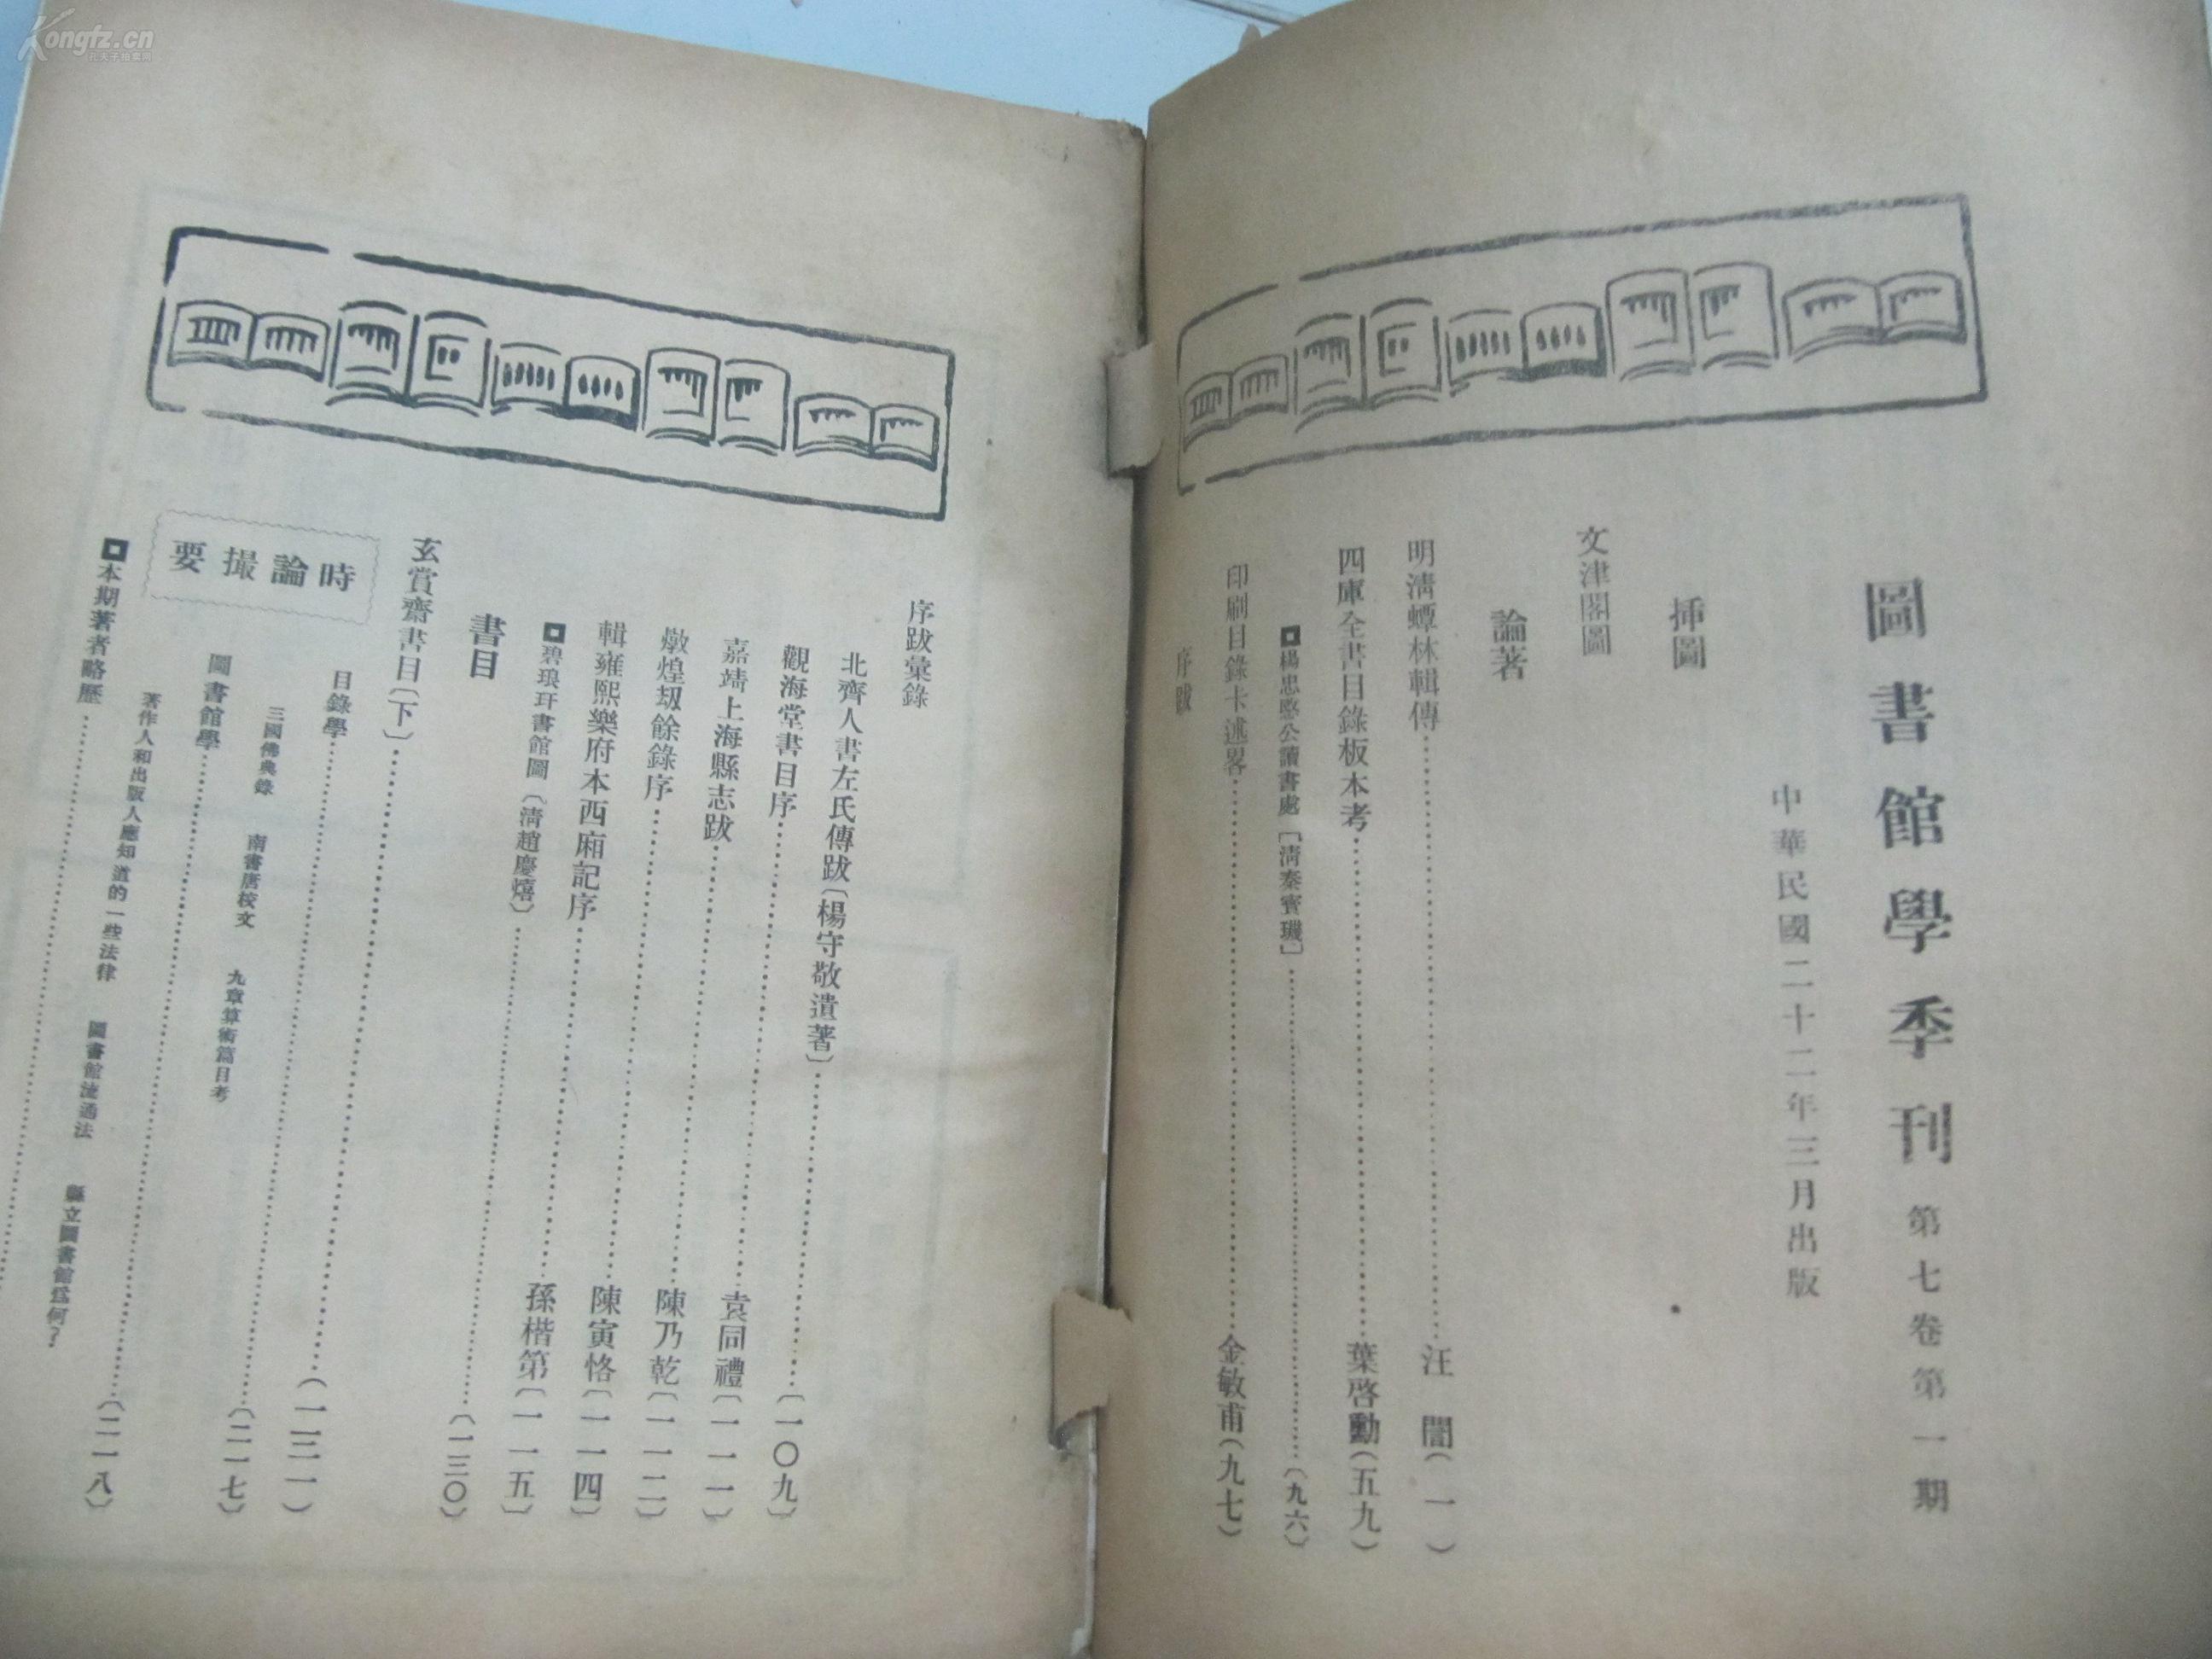 圖書館學季刊 第七卷第一期
中華民國二十二年三月出版
挿圖
文津閣圖
論著
明清蟫林輯傳 汪誾(一)
四庫全書目錄板本考 葉啓勳(五九)
楊忠愍公讀書處〔清秦賓璣〕 (九六)
印刷目錄卡述畧 金敏甫(九七)
序跋
序跋彙錄
北齊人書左氏傳跋〔楊守敬遺著〕 〔一〇九〕
觀海堂書目序 袁同禮〔一一一〕
嘉靖上海縣志跋 陳乃乾〔一一二〕
燉煌刼餘錄序 陳寅恪〔一一四〕
輯雍熙樂府本西廂記序 孫楷第〔一一五〕
碧琅玕書館圖〔清趙慶熺〕 〔一三〇〕
書目
玄賞齋書目〔下〕 (一三一)
時論撮要
目錄學 〔二一七〕
三國佛典錄 南書唐校文 九章算術篇目考
圖書館學 〔二一八〕
著作人和出版人應知道的一些法律 圖書館流通法 縣立圖書館爲何?
本期著者略歷
Kongfz.cn